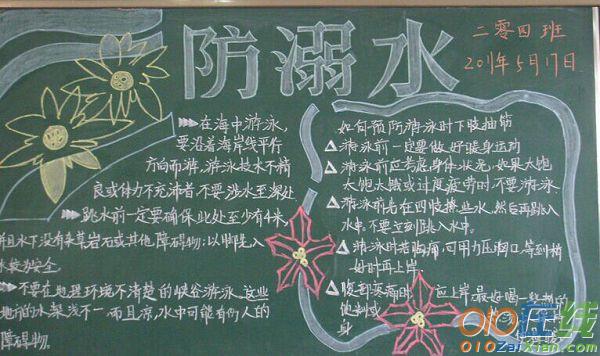 防溺水
二零四班
2011年5月17日
在海中游泳,
要沿着海岸线平行
方向而游,游泳技术不精
良或体力不充沛者,不要涉水至深处
跳水前一定要确保此处至少有4米,
并且水下没有杂草岩石或其他障碍物;以脚尾入
水较为安全
不要在地理环境不清楚的峡谷游泳,这些
地方的水深浅不一,而且凉,水中可能有伤人的
障碍物。
如何预防游泳时下肢抽筋
游泳前一定要做好暖身运动
游泳前应考虑身体状况,如果太饱
太饿或过度疲劳时不要游泳
游泳前先在四肢撩些水,然后再跳入
水中,不要立刻跳入水中。
游泳时若胸痛,可用力压胸口,等到稍
好时再上岸。
腹部 痛时 应上岸,最好喝一些热的
身
010在线
010zaixian.com